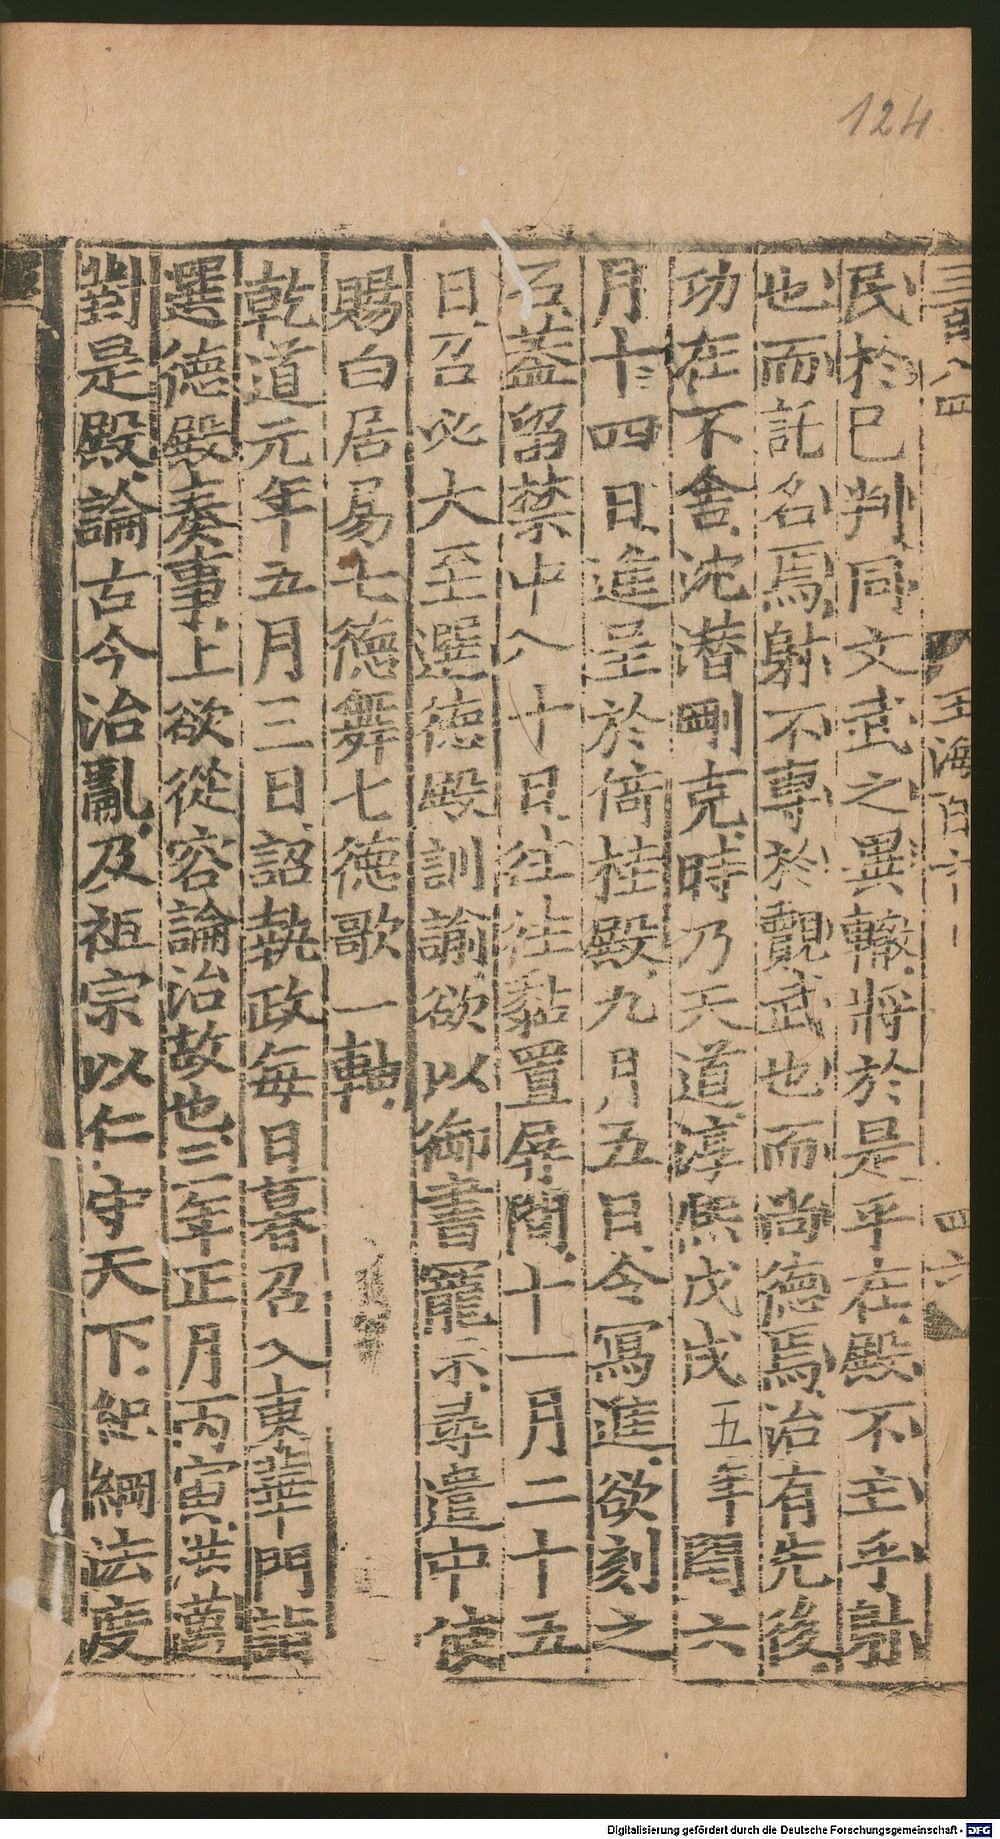 124
三百八四 玉海百六十一 四六
民於已判同文武之異轍將於是乎在殿不主乎射
也而託名焉射不專於觀武也而尚德焉治有先後
功在不舍沈潛剛克時乃天道淳熙戊戌五年閏六
月十四日進呈於倚桂殿九月五日令寫進欲刻之
石蓋留禁中八十日往往黏置屏間十一月二十五
日召必大至選德殿訓諭欲以御書罷示尋遣中使
賜白居易七德舞七德歌一軸
乾道元年五月三日詔執政每日暮召入東華門詣
選德殿奏事上欲從容論治故也三年正月丙寅洪适
對是殿論古今治亂及祖宗以仁守天下紀綱法度
Digitalisierung gefördert durch die Deutsche Forschungsgemeinschaft - DFG